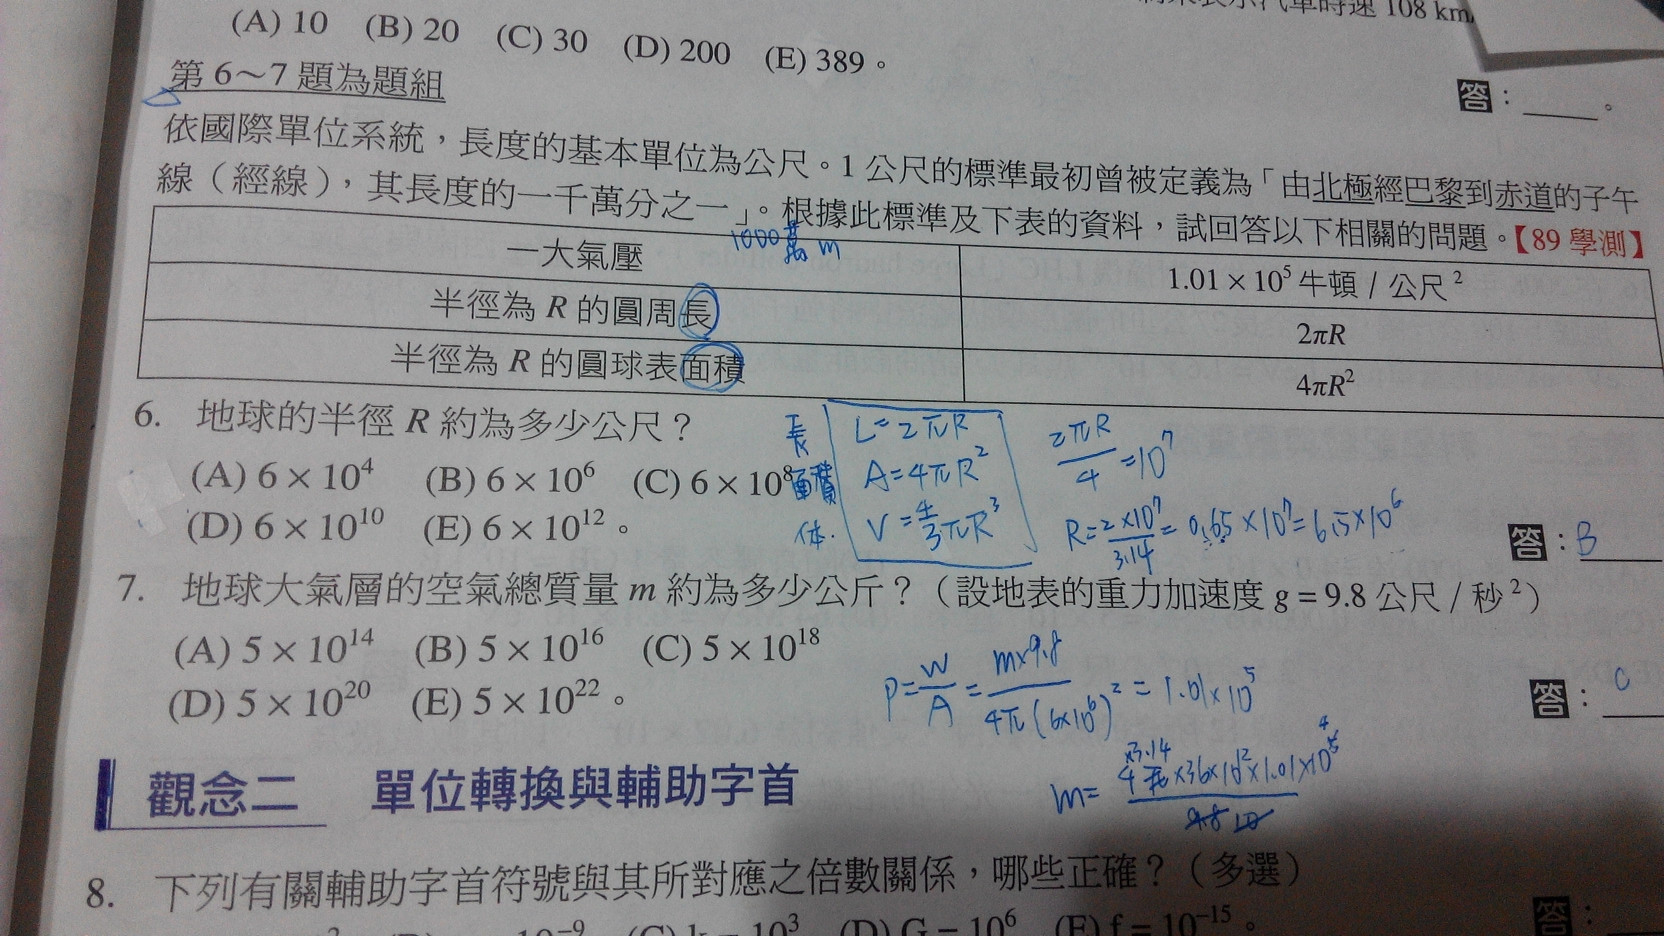 時速 108 km
(A) 10 (B) 20 (C) 30 (D) 200 (E) 389。
答：____。
第 6～7 題為題組
依國際單位系統，長度的基本單位為公尺。1 公尺的標準最初曾被定義為「由北極經巴黎到赤道的子午
線（經線），其長度的一千萬分之一」。根據此標準及下表的資料，試回答以下相關的問題。【89 學測】
1000萬 m
一大氣壓 1.01 × 10⁵ 牛頓 / 公尺²
半徑為 R 的圓周長 2πR
半徑為 R 的圓球表面積 4πR²
6. 地球的半徑 R 約為多少公尺？
(A) 6 × 10⁴ (B) 6 × 10⁶ (C) 6 × 10⁸
(D) 6 × 10¹⁰ (E) 6 × 10¹²。
長 L = 2πR
面積 A = 4πR²
体. V = 4/3 πR³
2πR/4 = 10⁷
R = 2×10⁷/3.14 = 0.65 × 10⁷ = 6.5×10⁶
答：B
7. 地球大氣層的空氣總質量 m 約為多少公斤？（設地表的重力加速度 g = 9.8 公尺 / 秒²）
(A) 5 × 10¹⁴ (B) 5 × 10¹⁶ (C) 5 × 10¹⁸
(D) 5 × 10²⁰ (E) 5 × 10²²。
P = W/A = m×9.8/4π(6×10⁶)² = 1.01×10⁵
答：C
觀念二 單位轉換與輔助字首
8. 下列有關輔助字首符號與其所對應之倍數關係，哪些正確？（多選）
答：
10⁻⁹ (C) k = 10³ (D) G = 10⁶ (E) f = 10⁻¹⁵。